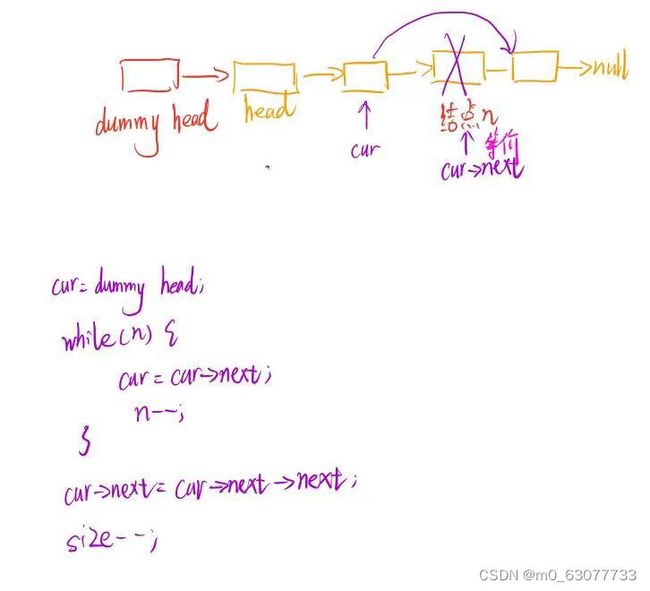 null
dummy head
head
结点n
cur
等价
cur->next
cur=dummy head;
while(n) {
cur=cur->next;
n--;
}
cur->next=cur->next->next;
size--;
CSDN @m0_63077733